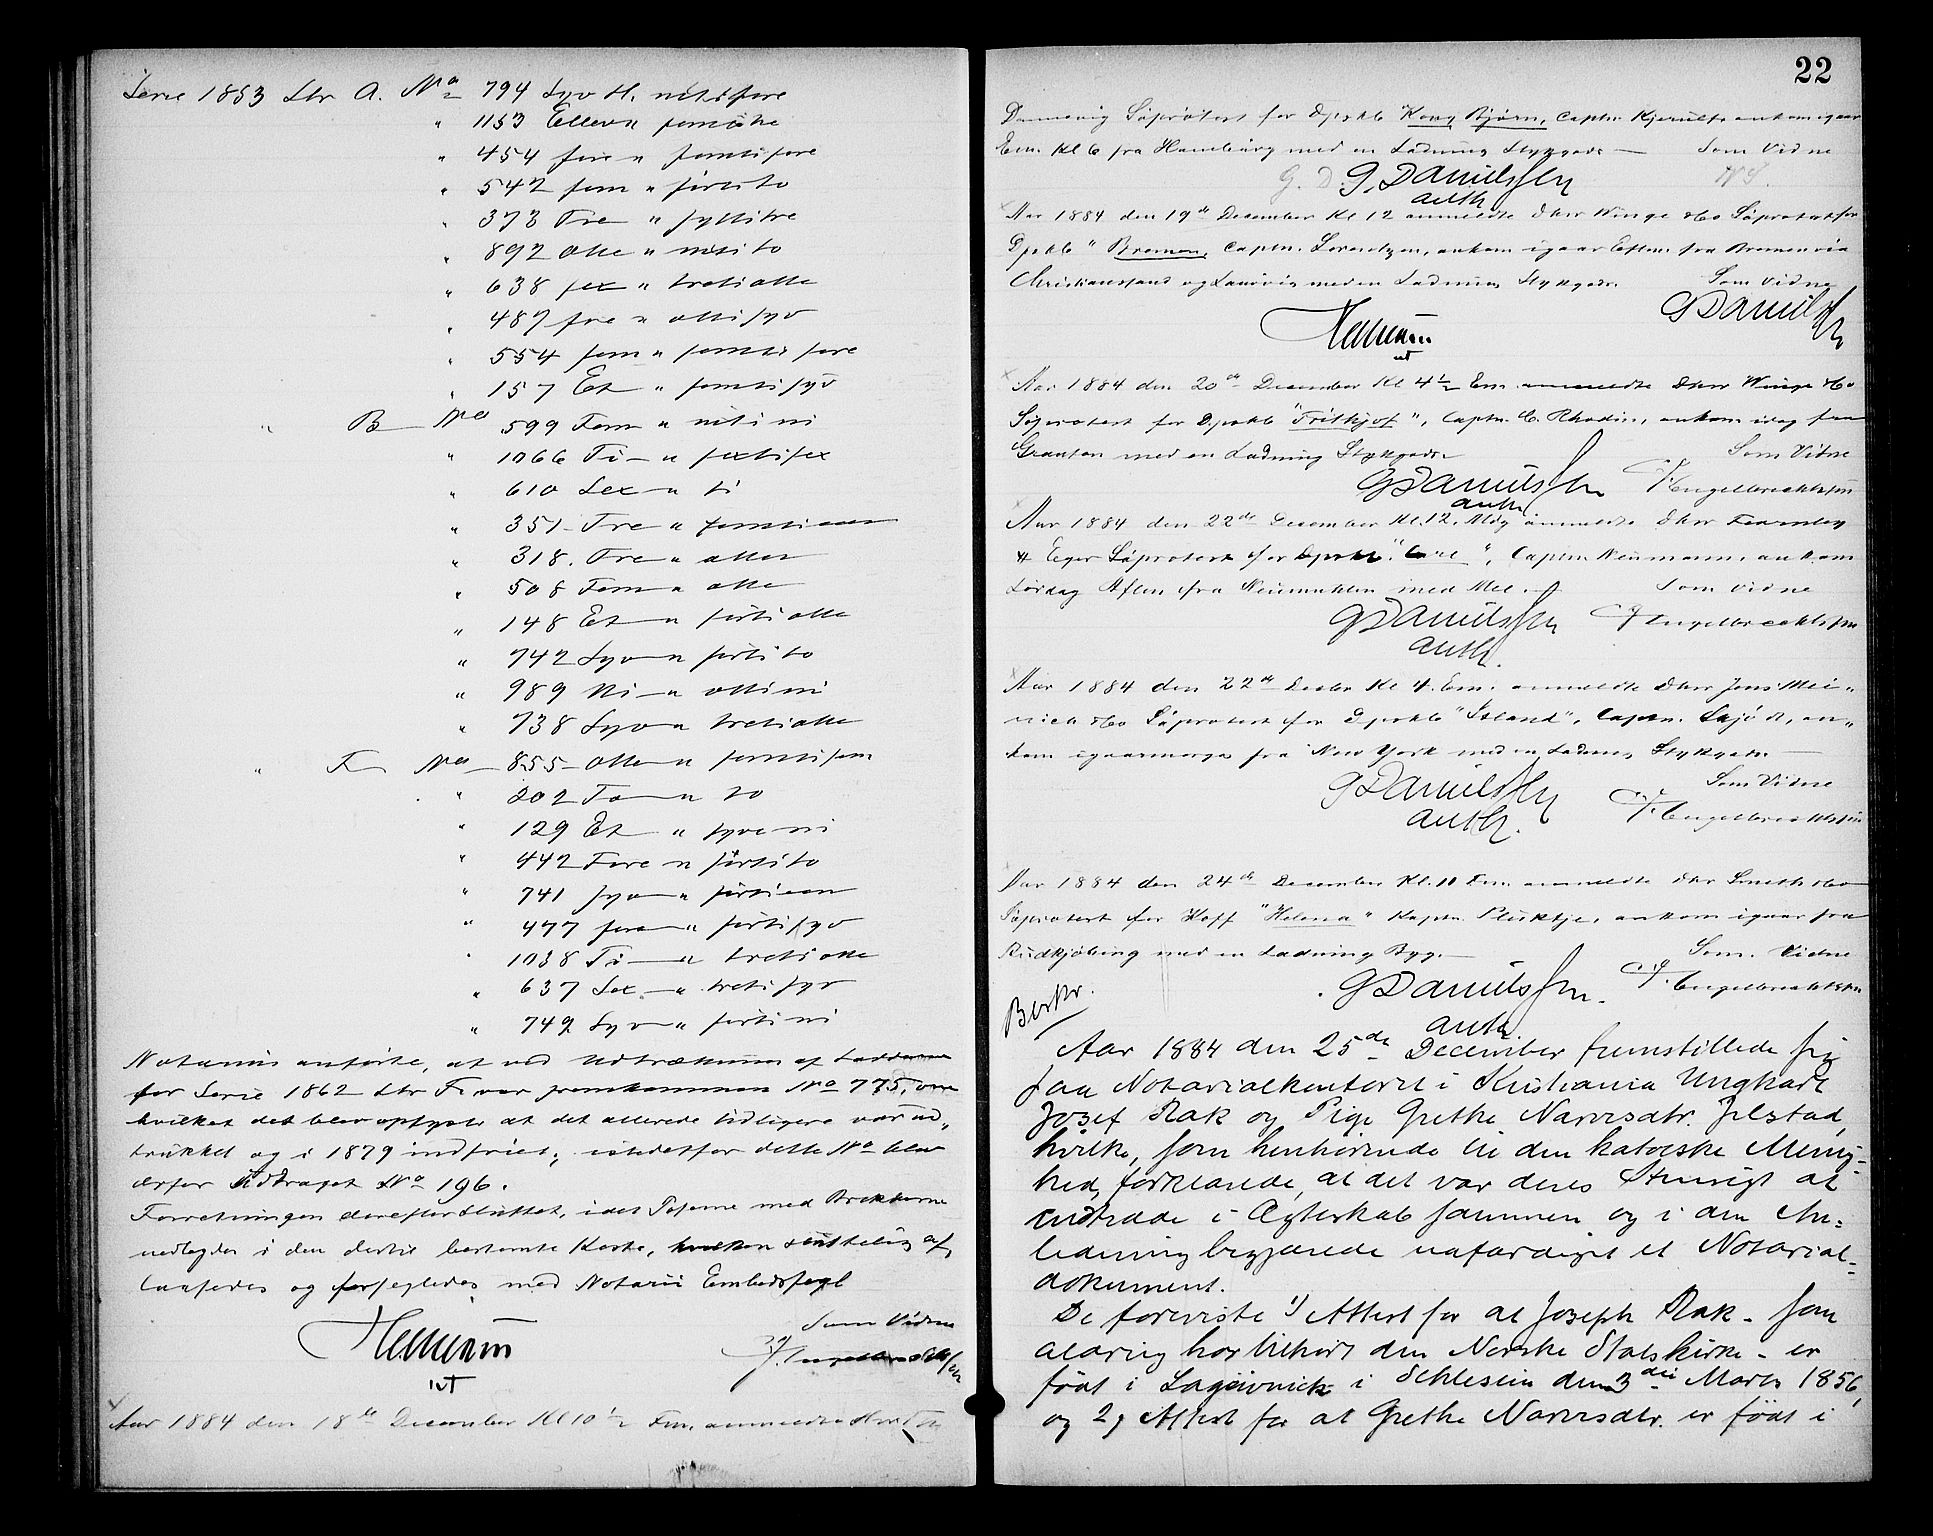 Serie 1853 Ltr A. No 794 Syv H. nitifire
" 1153 Elleve " femtitre
" 454 fire " femtifire
" 542 fem " førtito
" 373 Tre " syttitre
" 892 Otte " nitito
" 638 sex " tretiotte
" 487 fire " ottisyv
" 554 fem " femtifire
" 157 Et " femtisyv
" B No 599 Fem " nitini
" 1066 Ti " sextisex
" 610 Sex " ti
" 351 Tre " femtieen
" 318. Tre " atten
" 508 Fem " otte
" 148 Et " førtiotte
" 742 Syv " førtito
" 989 Ni " ottini
" 738 Syv " tretiotte
" F No 855 Otte " femtifem
" 202 To " to
" 129 Et " tyveni
" 442 Fire " førtito
" 741 syv " førtieen
" 477 fire " syttisyv
" 1038 Ti " tretiotte
" 637 Sex " tretisyv
" 749 Syv " førtini
Notarius anførte, at ved Udtrækning af Lodderne
for Serie 1862 Ltr F var fremkommen No 775, om
hvilket det blev oplyst at det allerede tidligere var ud„
trukket og i 1879 indfriet; istedetfor dette No blev
derfor Udtraget No 196.
Forretningen derefter sluttet, idet Poserne med Brikkerne
nedlagdes i den dertil bestemte Kasse, hvilken sluttelig af„
laasedes og forsegledes med Notarii Embedssegl
Som Vidne
Aar 1884 den 18de December Kl 10 1/2 Fm. anmeldte
22
Søprotest for Dpskb "Kong Bjørn, Captn. Kjerulf, ankom igaar
Em. Kl 6 fra Hamburg med en Ladning Stykgods — Som Vidne
G. D. G. Danielssen
auth
Aar 1884 den 19de December Kl 12 anmeldte Dhrr Winge & Co Søprotest for
Dpskb "Bremen, Captn. Lorentzen, ankom igaar Eftm. fra Bremen via
Christianssand og Laurvig med en Ladning Stykgods. Som Vidne
G Danielssen
Aar 1884 den 20de December Kl 4 1/2 Em. anmeldte Dhrr Winge & Co
Søprotest for Dpskb "Frithjof", Captn. C. Rhodin, ankom idag fra
Granton med en Ladning Stykgods. Som Vidne
G Danielssen Engelbrechtsen
auth
Aar 1884 den 22de December Kl. 12. Mdg anmeldte Dhrr Fearnley
& Eger Søprotest for Dpskb. "Carl", Captn. Neumann, ankom
Lørdag Aften fra Neumuhlen med Mel. Som Vidne
G Danielssen Engelbrechtsen
auth.
Aar 1884 den 22de Decbr Kl 4. Em. anmeldte Dhrr Jens Mei„
nich & Co Søprotest for Dpskb "Island", Captn. Skjødt, an„
kom igaarmorges fra New York med en Ladning Stykgods —
Som Vidne
G Danielssen Engelbrechtsen
auth.
Aar 1884 den 24de December Kl. 10 Fm. anmeldte Dhrr Smith & Co
Søprotest for Koff "Helena" Kaptn. Pluktje, ankom igaar fra
Rudkjøbing med en Ladning Byg. Som Vidne
G Danielssen. Engelbrechtsen
auth
Beskr.
Aar 1884 den 25de December fremstillede sig
paa Notarialkontoret i Kristiania Ungkarl
Josef Rak og Pige Grethe Narvesdtr. Jelstad,
hvilke, som henhørende til den katolske Menig=
hed, forklarede, at det var deres Hensigt at
indtræde i Ægteskab sammen og i den An=
ledning begjærede udfærdiget et Notarial=
dokument.
De foreviste 1) Attest for at Joseph Rak - som
aldrig har tilhørt den Norske Statskirke - er
født i Lagiewnick i Schlesien den 3die Marts 1856,
og 2) Attest for at Grethe Narvesdtr. er født i